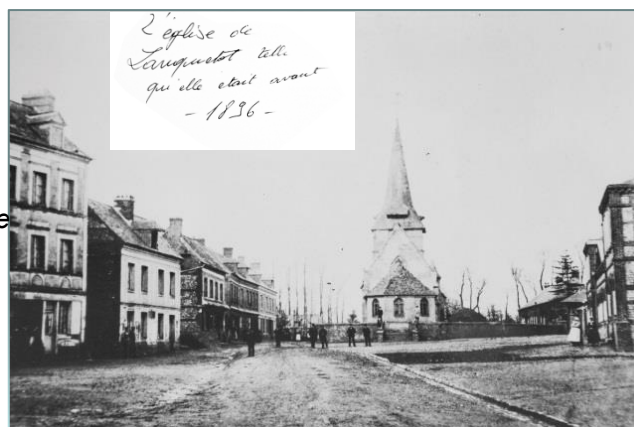 L'église de
Lanquetot telle
qu'elle était avant
- 1896 -
e